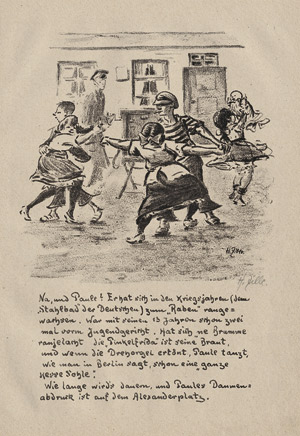 H. Zille
H. Zille
Na, und Paule? Er hat sich in den Kriegsjahren (dem
Stahlbad der Deutschen) zum "Raben" range-
wachsen. War mit seinen 13 Jahren schon zwei
mal vorm Jugendgericht. Hat sich ne Bramme
ranjelacht die "Punkelfrida" ist seine Braut,
und wenn die Drehorgel ertönt, Paule tanzt,
wie man in Berlin sagt, schon "eine ganze
kesse Sohle"!
Wie lange wirds dauern, und Paules Daumen-
abdruck ist auf dem Alexanderplatz.